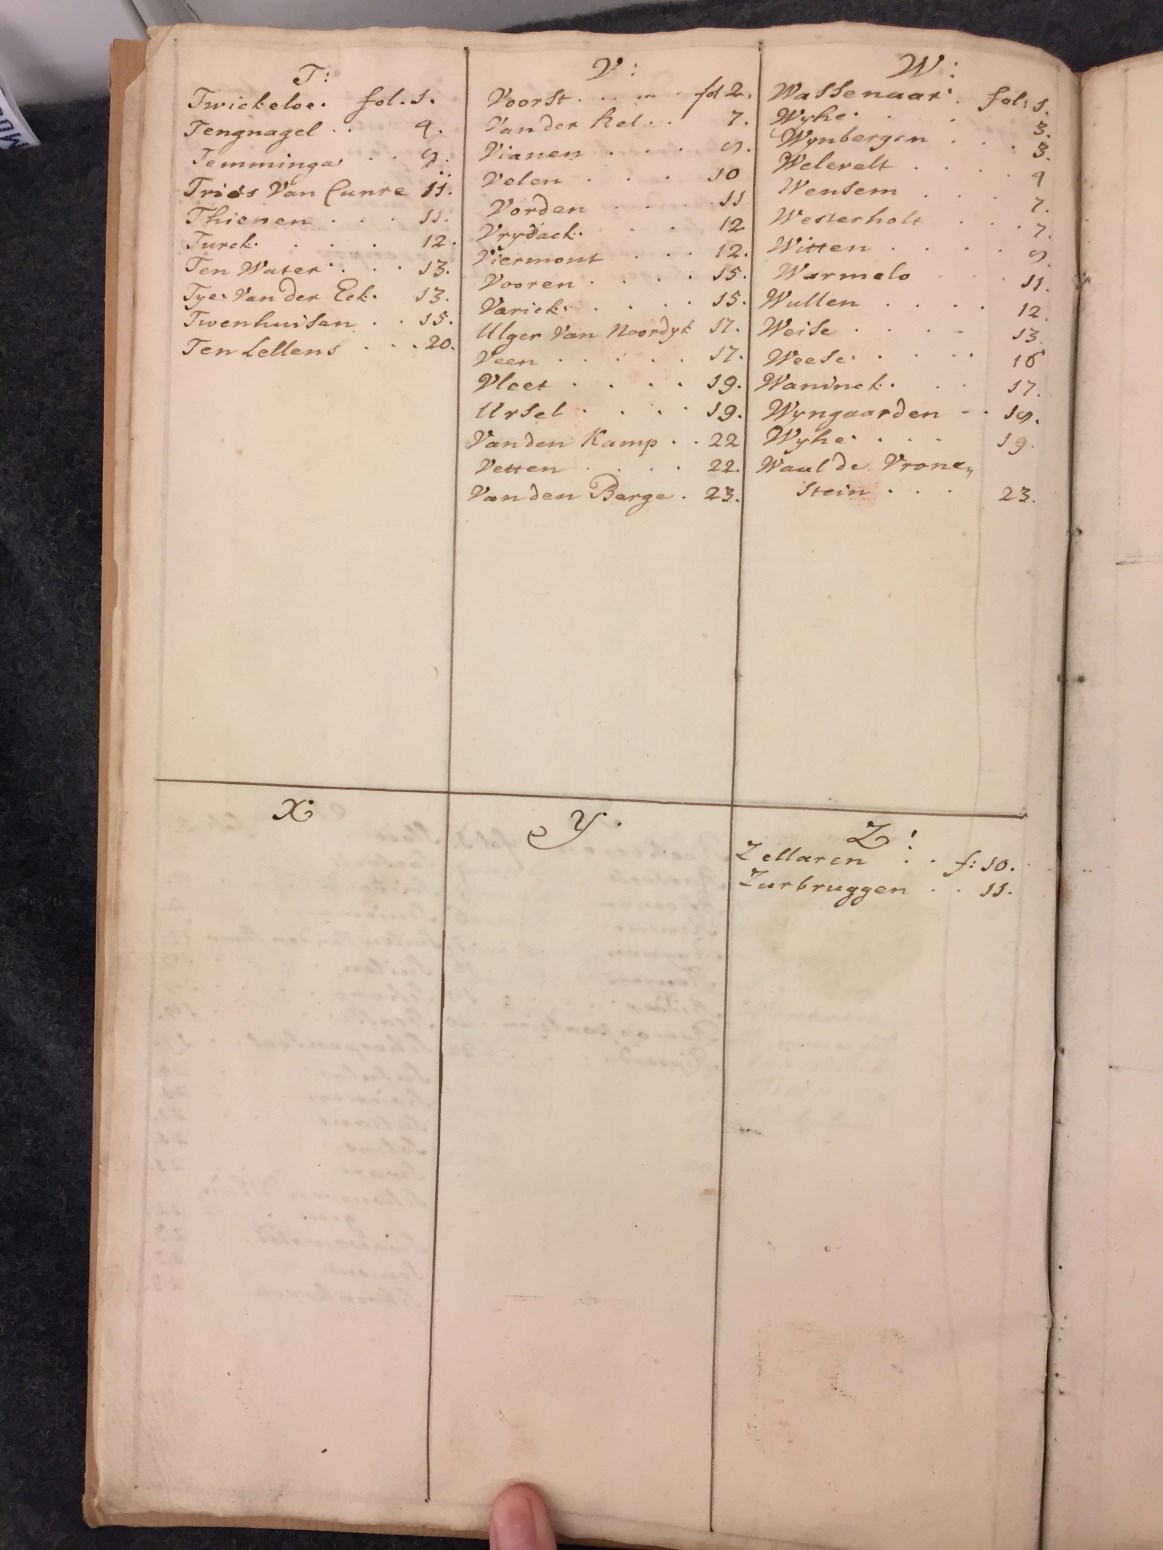 T:
Twickeloe. fol. 1.
Tengnagel . . 4.
Temminga . . 9.
Tries Van Cunre 11.
Thienen . . . 11.
Turck . . . . 12.
Ten Water . . . 13.
Tye Van der Eck. 13.
Twenhuisen . . 15.
Ten Lellens . . . 20.
V:
Voorst . . . . fol 2.
Van der Kel . . 7.
Vianen . . . 9.
Velen . . . 10
Vorden . . . 11
Vrydack . . . 12
Viermont . . . 12.
Vooren . . . . 15.
Varick . . . . 15.
Ulger Van Noordyk 17.
Veen . . . . . 17.
Vleet . . . . 19.
Ursel . . . . 19.
Van den Kamp . . 22
Vetten . . . . 22.
Van den Berge . 23.
W:
Wassenaar . fol: 1.
Wyhe . . . 3.
Wynbergen . . . 3.
Welevelt . . . . 4
Wensem . . . 7.
Westerholt . . . 7.
Witten . . . . 9.
Warmelo . . 11.
Wullen . . . . 12.
Weise . . . - 13
Weese . . . . . 16
Waninck . . . 17.
Wyngaarden - . 19.
Wyhe . . . . 19.
Waal de Vrone„
stein . . . 23.
X:
Y.
Z:
Zellaren . . f: 10.
Zurbruggen . . 11.